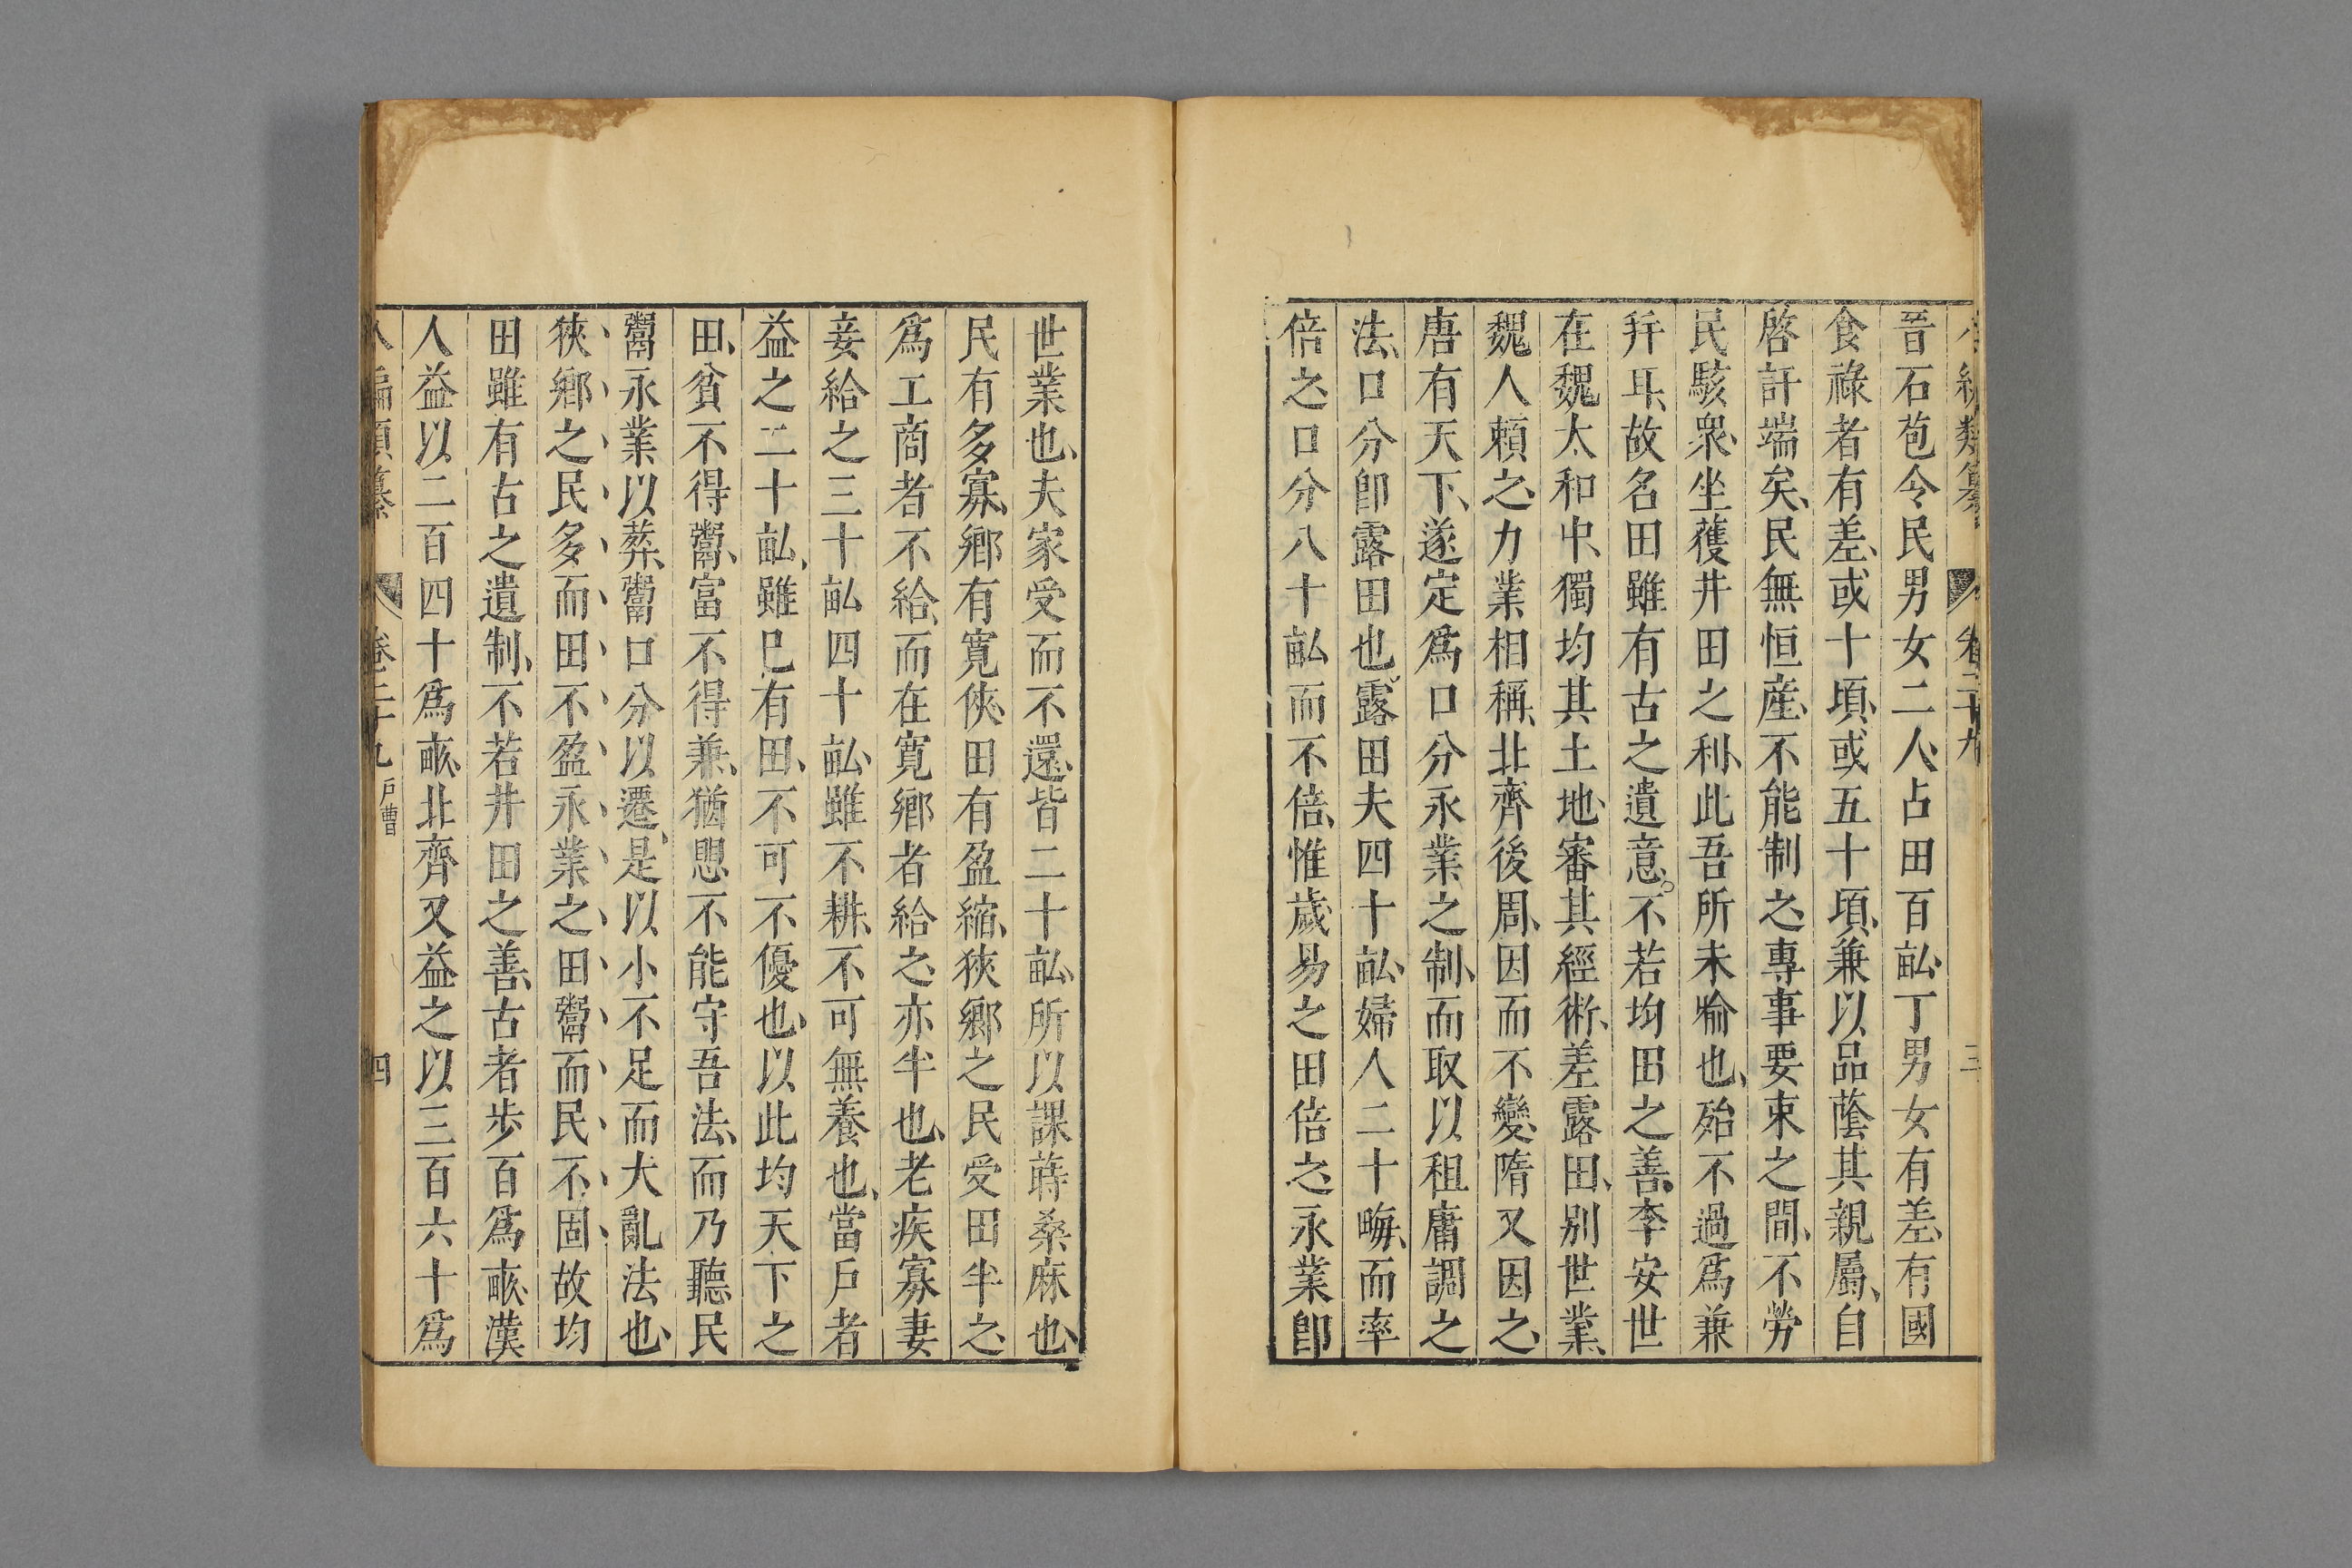 編類纂 卷二十九 三
晉石苞令民男女二人、占田百畝、丁男女有差、有國
食祿者有差、或十頃、或五十頃、兼以品蔭其親屬、自
啓訐端矣、民無恒產、不能制之、專事要束之間、不勞
民駭衆、坐獲井田之利、此吾所未喻也、殆不過爲兼
幷耳、故名田雖有古之遺意。不若均田之善、李安世
在魏太和中、獨均其土地、審其經術、差露田、別世業、
魏人賴之、力業相稱、北齊後周、因而不變、隋又因之、
唐有天下、遂定爲口分永業之制、而取以租庸調之
法、口分卽露田也、露田夫四十畝、婦人二十畮、而率
倍之口分八十畝而不倍、惟歲易之田倍之、永業卽
世業也、夫家受而不還、皆二十畝、所以課蒔桑麻也、
民有多寡、鄉有寬俠、田有盈縮、狹鄉之民受田半之、
爲工商者不給、而在寬鄉者給之、亦半也、老疾寡妻
妾給之三十畝四十畝、雖不耕、不可無養也、當戶者
益之二十畝、雖巳有田、不可不優也、以此均天下之
田、貧不得鬻、富不得兼、猶思不能守吾法、而乃聽民
鬻永業以葬、鬻口分以遷、是以小不足而大亂法也、
狹鄉之民多而田不盈永業之田鬻而民不固故均
田雖有古之遺制、不若井田之善、古者步百爲畞、漢
人益以二百四十爲畞、北齊又益之以三百六十爲
編類纂 卷二十九 戶曹 四